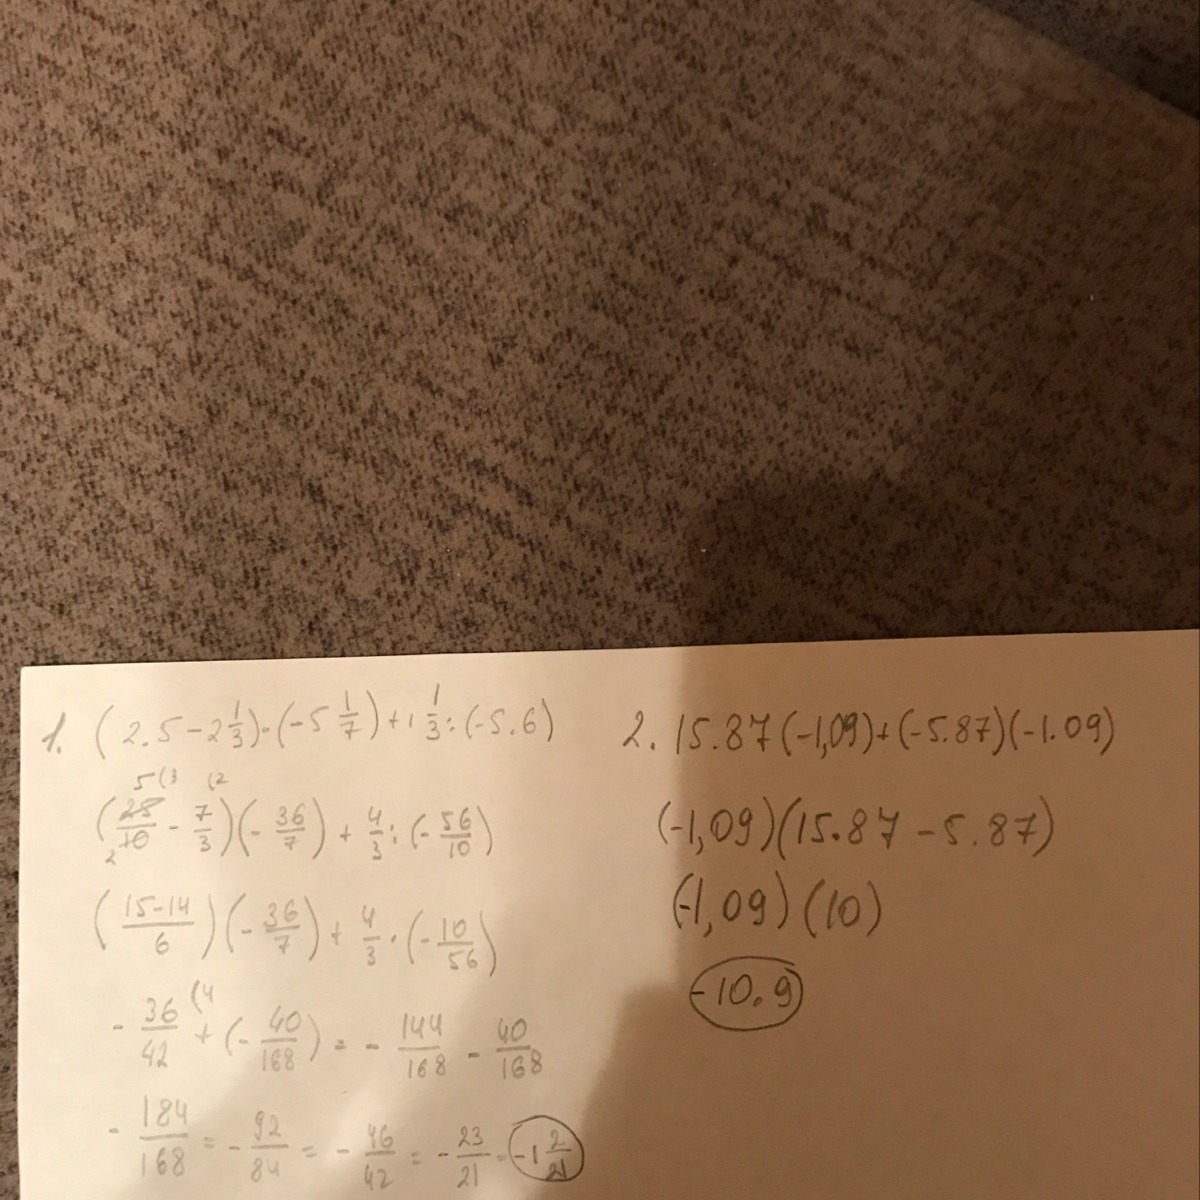 1. (2.5 - 2 1/3) · (-5 1/7) + 1 1/3 : (-5.6)
5(3 (2
(25/10 - 7/3)(- 36/7) + 4/3 : (- 56/10)
2
((15-14)/6)(- 36/7) + 4/3 · (- 10/56)
- 36/42 (4 + (- 40/168) = - 144/168 - 40/168
- 184/168 = - 92/84 = - 46/42 = - 23/21 = -1 2/21
2. 15.87(-1,09)+(-5.87)(-1.09)
(-1,09)(15.87 - 5.87)
(-1,09)(10)
-10.9